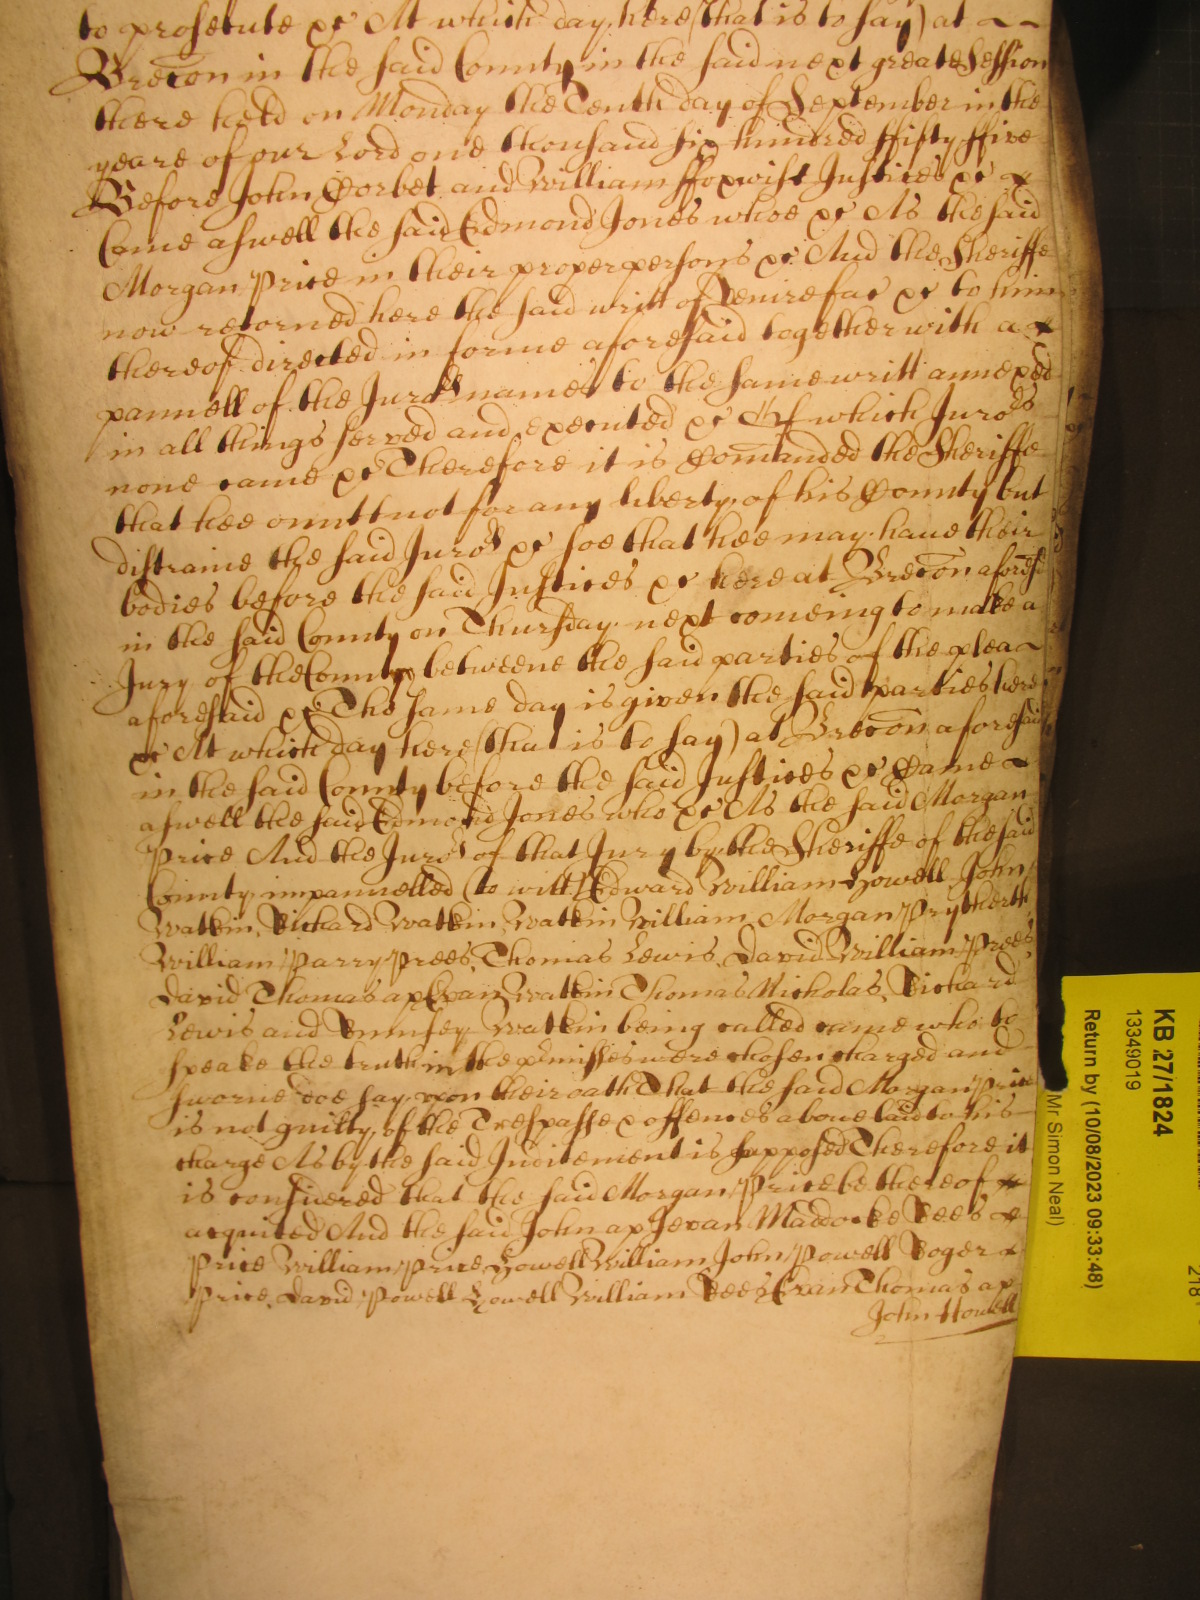 to prosecute &c At which day here (that is to say) at
Brecon in the said County in the said next greate Session
there held on Monday the Tenth day of September in the
yeare of our Lord one thousand six hundred ffifty ffive
Before John Corbet and William ffoxwist Justices &c
Came aswell the said Edmond Jones whoe &c As the said
Morgan Price in their proper persons &c And the Sheriffe
now retorned here the said writt of Venire fac &c to him
thereof directed in forme aforesaid together with a
pannell of the Juro:rs names to the same writt annexed
in all things served and executed &c Of which Juro:rs
none came &c Therefore it is Comanded the Sheriffe
that hee omitt not for any liberty of his County but
distraine the said Juro:rs &c soe that hee may have their
bodies before the said Justices &c here at Brecon aforesd
in the said County on Thursday next comeing to make a
Jury of the County betweene the said parties of the plea
aforesaid &c The same day is given the said parties here
&c At which day here (that is to say) at Brecon aforesaid
in the said County before the said Justices &c Came
aswell the said Edmond Jones who &c As the said Morgan
Price And the Juro:rs of that Jury by the Sheriffe of the said
County impannelled (to witt) Edward William Howell John
Watkin, Richard Watkin, Watkin William, Morgan Prytherth
William Parry Prees, Thomas Lewis, David William Prees,
David Thomas ap Evan Watkin Thomas Nicholas, Richard
Lewis and Watkin being called came who to
speake the truth in the p:rmisses were chosen charged and
sworne doe say upon their oath That the said Morgan Price
is not guilty of the Trespasse & offences above laid to his
charge As by the said Inditement is supposed Therefore it
is considered that the said Morgan Price be thereof
acquited And the said John ap Jevan Maddocke Rees
Price William Price, Howell William, John Powell Roger
Price, David Powell Howell William Rees Evan Thomas ap
John Howell
KB 27/1824
13349019
Return by (10/08/2023 09:33:48)
Mr Simon Neal)
218